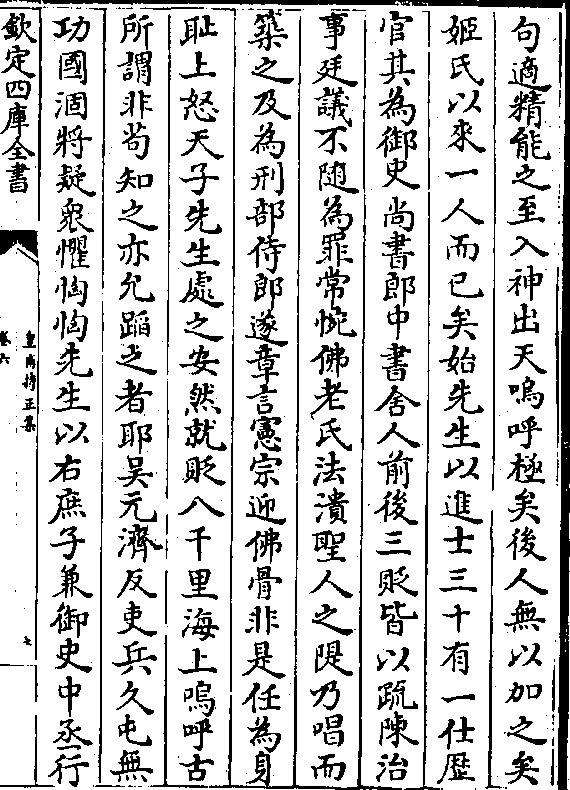 句適精能之至入神出天嗚呼極矣後人無以加之矣
姬氏以來一人而已矣始先生以進士三十有一仕歷
官其為御史尚書郎中書舍人前後三貶皆以疏陳治
事廷議不隨為罪常惋佛老氏法潰聖人之隄乃唱而
築之及為刑部侍郎遂章言憲宗迎佛骨非是任為身
恥上怒天子先生處之安然就貶八千里海上嗚呼古
所謂非苟知之亦允蹈之者耶吳元濟反吏兵久屯無
功國涸將疑衆懼恟恟先生以右庶子兼御史中丞行
欽定四庫全書
皇甫持正集
卷六
七